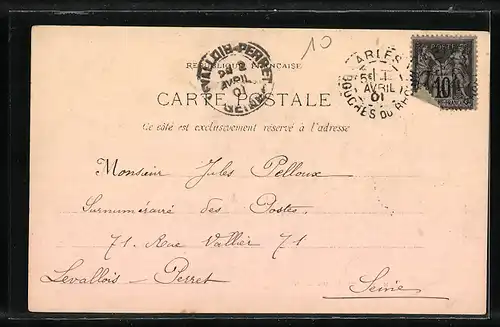 10
RÉPUBLIQUE FRANÇAISE
LEVALLOIS-PERRET
2
AVRIL
01
SEINE
ARLES
AVRIL
01
BOUCHES DU RH
10
CARTE POSTALE
Ce côté est exclusivement réservé à l'adresse
Monsieur Jules Pelloux
Surnuméraire des Postes.
71. Rue Vallier 71
Levallois - Perret
Seine